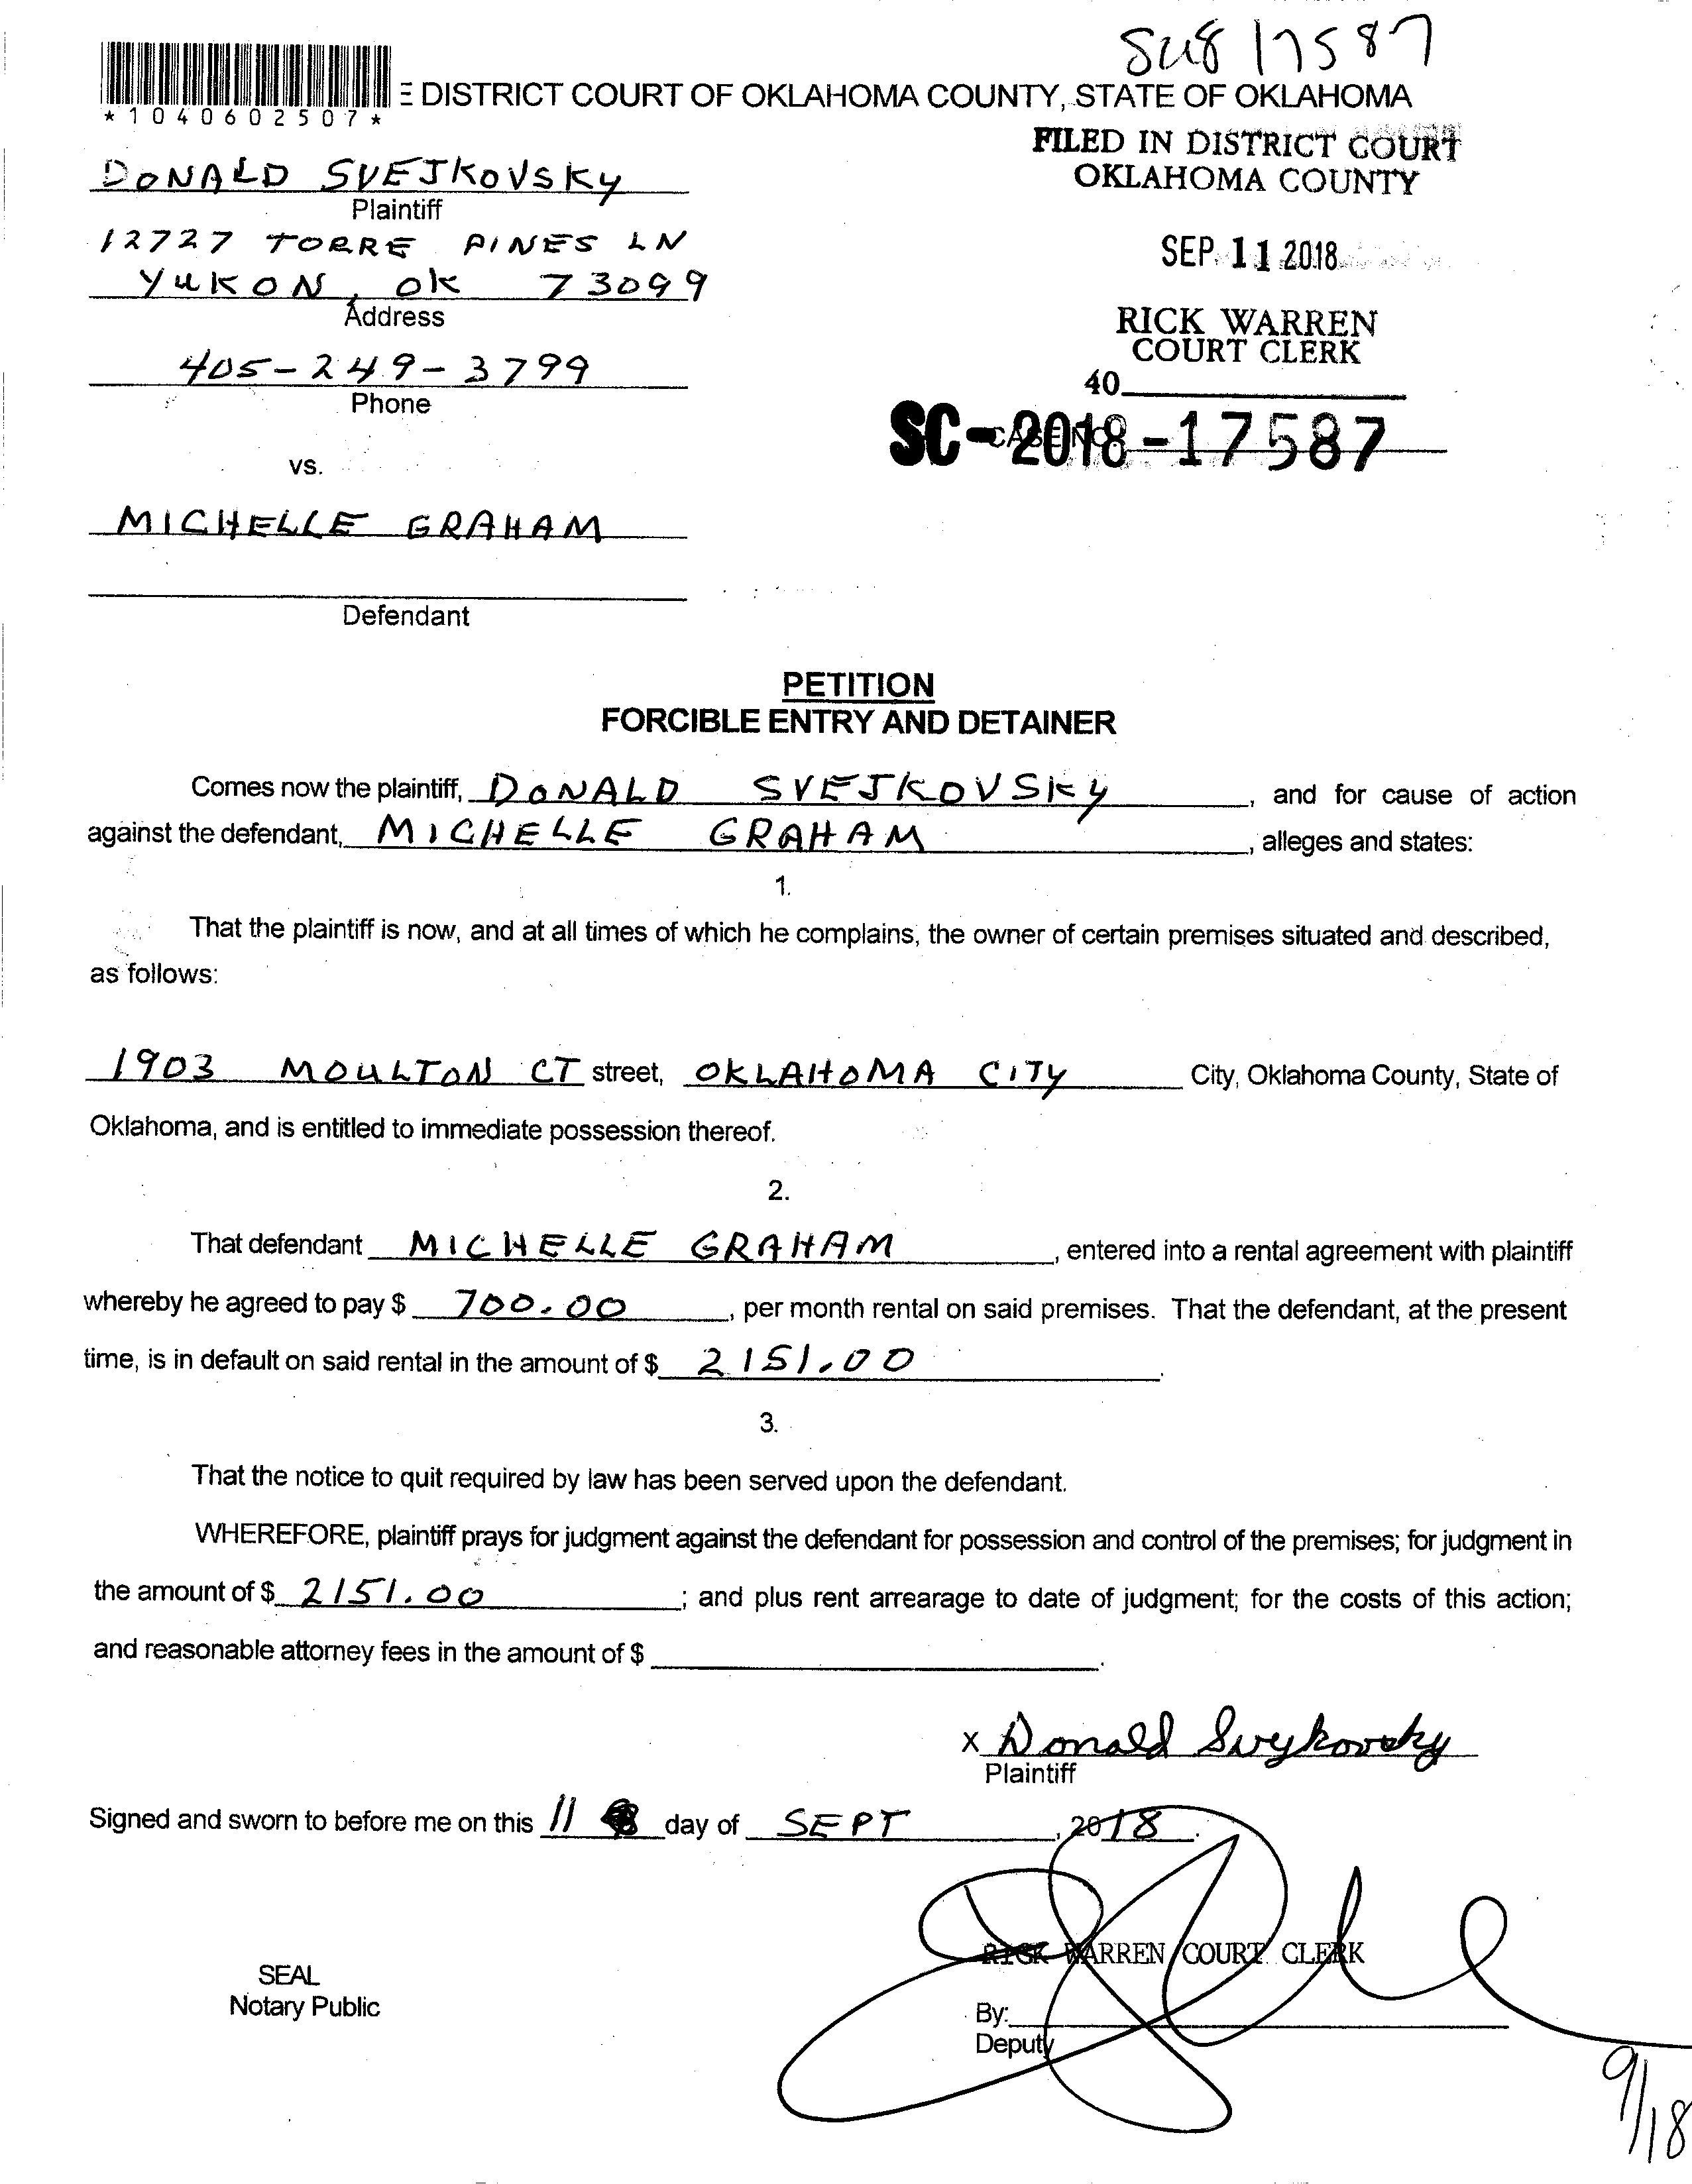 SC18 17587
E DISTRICT COURT OF OKLAHOMA COUNTY, STATE OF OKLAHOMA
*1040602507*
FILED IN DISTRICT COURT
OKLAHOMA COUNTY
DONALD SVEJKOVSKY
Plaintiff
12727 TORRE PINES LN
SEP 11 2018
YUKON, OK 73099
Address
RICK WARREN
COURT CLERK
405-249-3799
40
Phone
SC-2018-17587
CASE NO.
vs.
MICHELLE GRAHAM
Defendant
PETITION
FORCIBLE ENTRY AND DETAINER
Comes now the plaintiff, DONALD SVEJKOVSKY, and for cause of action
against the defendant, MICHELLE GRAHAM, alleges and states:
1.
That the plaintiff is now, and at all times of which he complains, the owner of certain premises situated and described,
as follows:
1903 MOULTON CT street, OKLAHOMA CITY City, Oklahoma County, State of
Oklahoma, and is entitled to immediate possession thereof.
2.
That defendant MICHELLE GRAHAM, entered into a rental agreement with plaintiff
whereby he agreed to pay $ 700.00, per month rental on said premises. That the defendant, at the present
time, is in default on said rental in the amount of $ 2151.00.
3.
That the notice to quit required by law has been served upon the defendant.
WHEREFORE, plaintiff prays for judgment against the defendant for possession and control of the premises; for judgment in
the amount of $ 2151.00; and plus rent arrearage to date of judgment; for the costs of this action;
and reasonable attorney fees in the amount of $ .
X Donald Svejkovsky
Plaintiff
Signed and sworn to before me on this 11 day of SEPT, 2018.
RICK WARREN COURT CLERK
SEAL
Notary Public
By:
Deputy
9/18